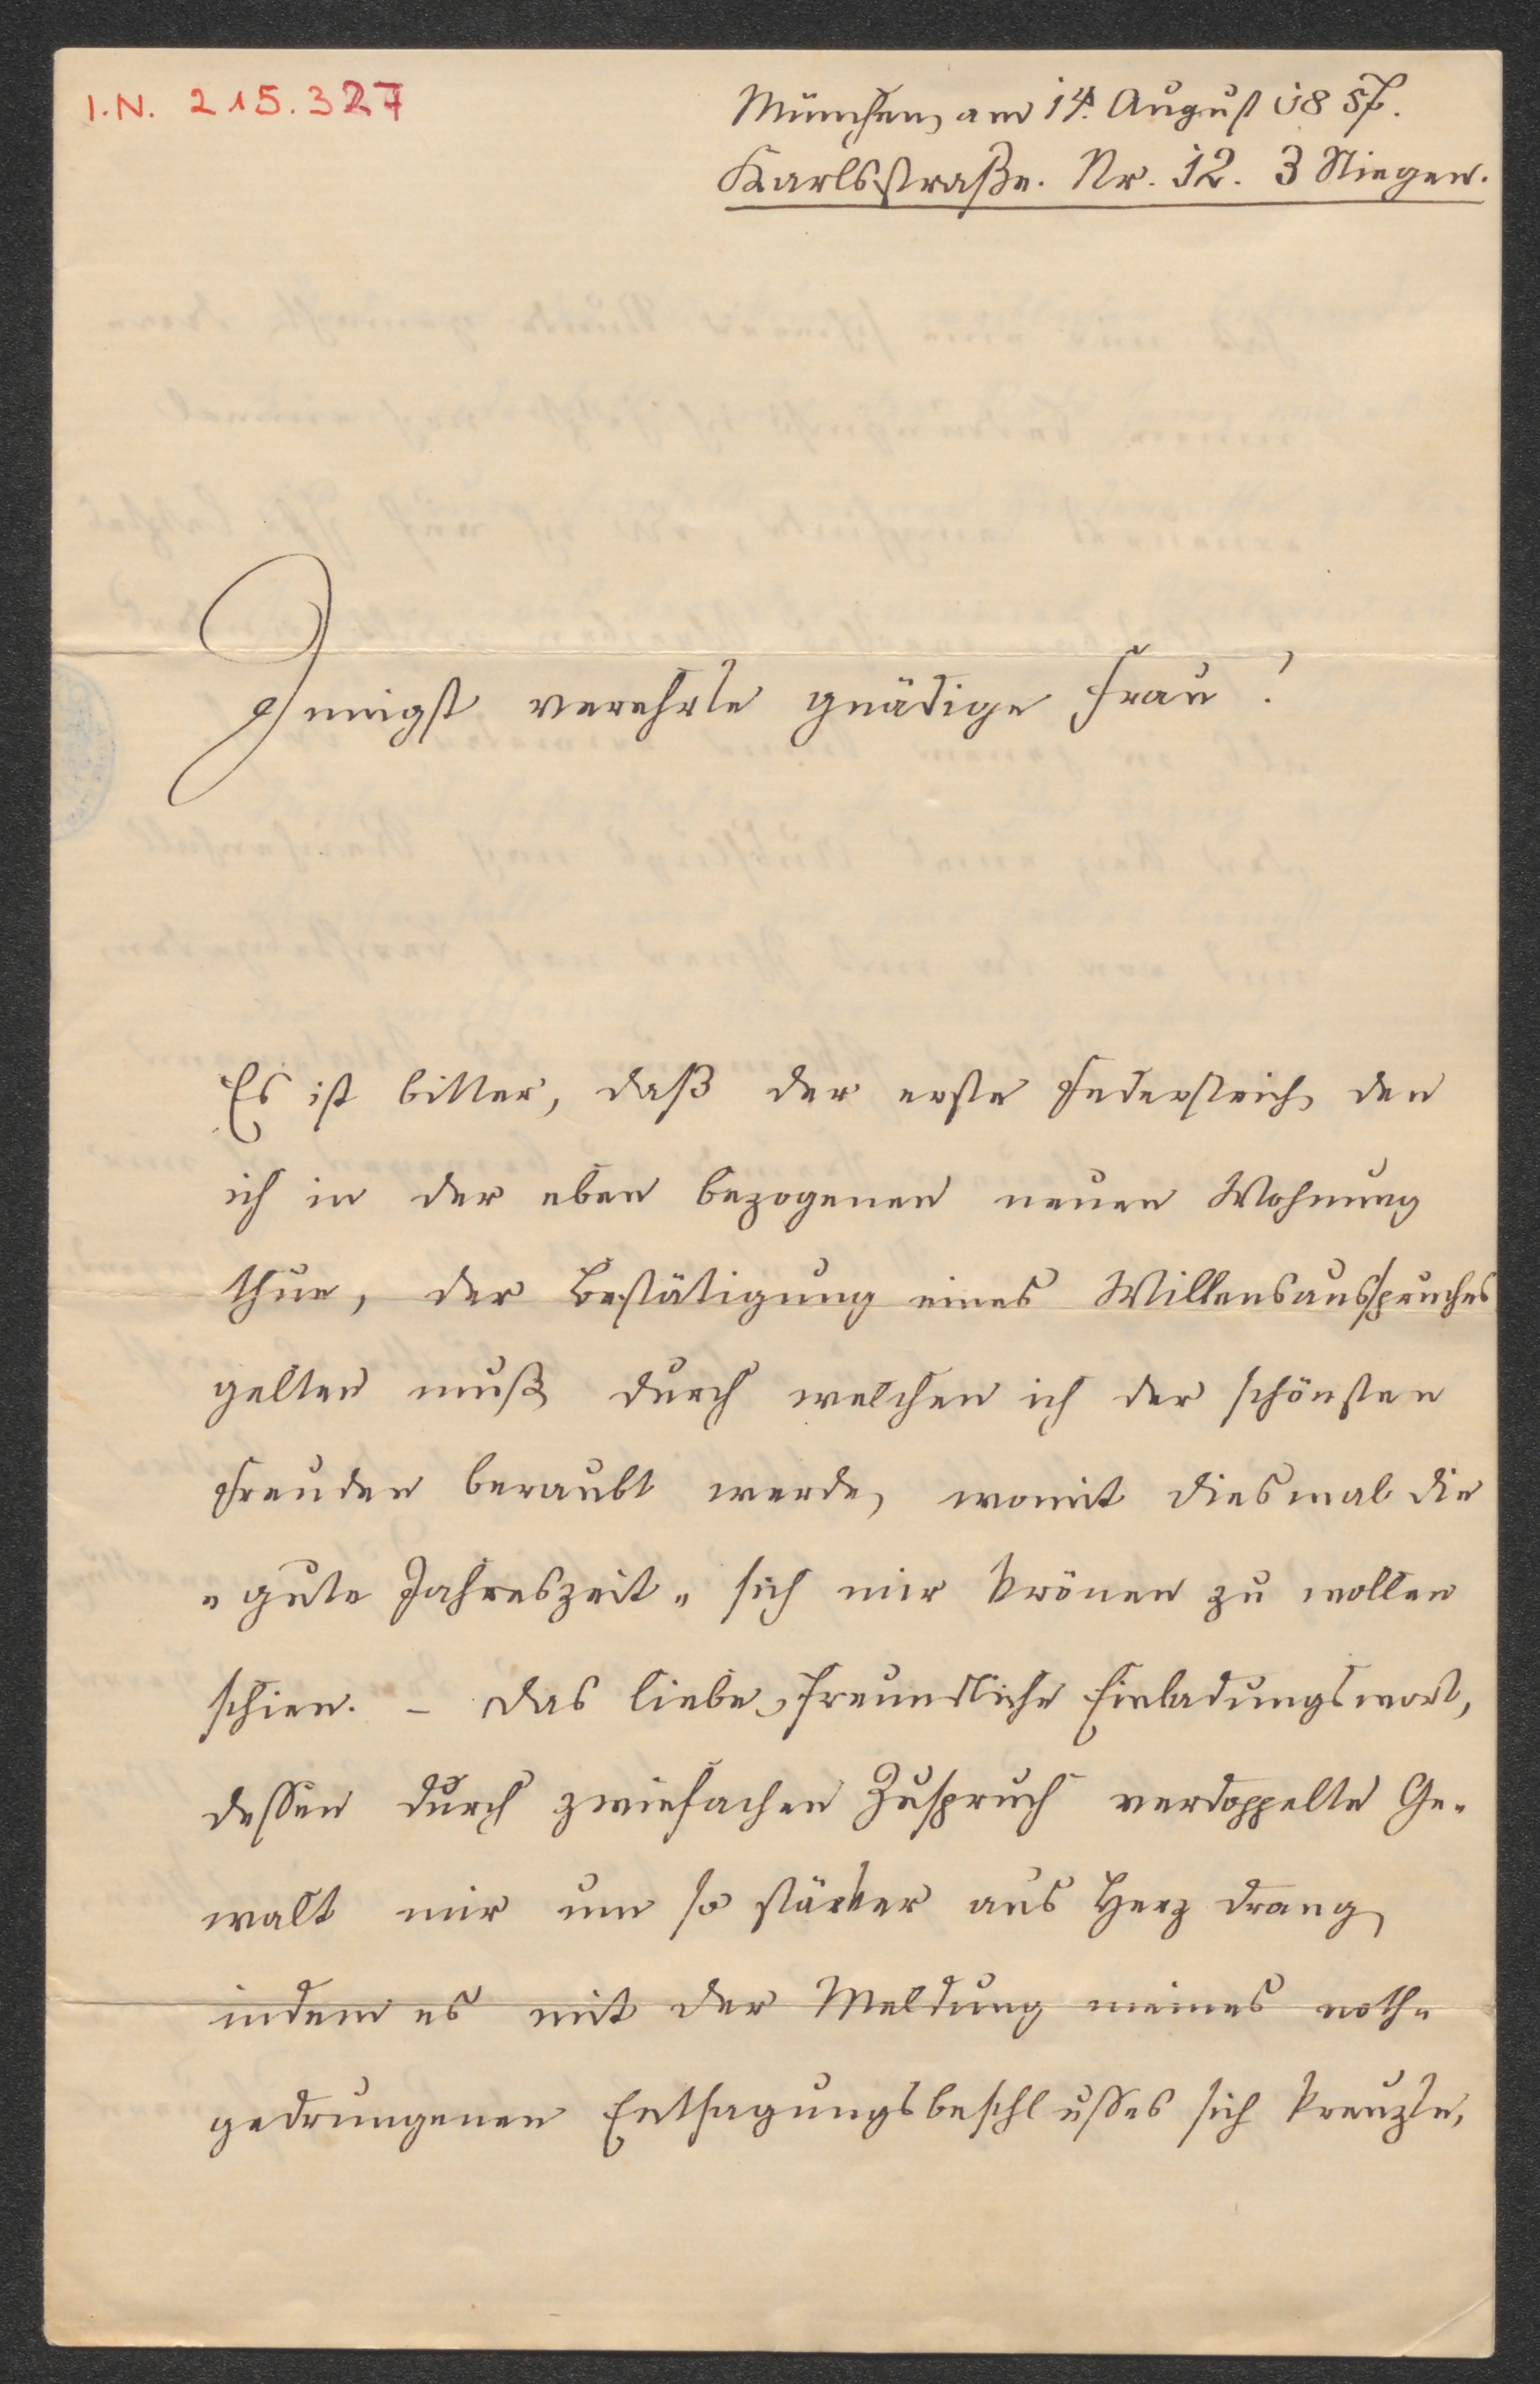 I.N. 215.327
München, am 14. August 1857.
Karlsstraße. Nr. 12. 3 Stiegen.
Innigst verehrte gnädige Frau!
Es ist bitter, daß der erste Federstrich, den
ich in der eben bezogenen neuen Wohnung
thue, der Bestätigung eines Willensausspruches
gelten muß, durch welchen ich der schönsten
Freuden beraubt werde, womit diesmal die
„gute Jahreszeit„ sich mir krönen zu wollen
schien. – Das liebe, freundliche Einladungswort,
dessen durch zwiefachen Zuspruch verdoppelte Ge-
walt mir um so stärker ans Herz drang,
indem es mit der Meldung meines noth-
gedrungenen Entsagungsbeschlußes sich kreuzte,